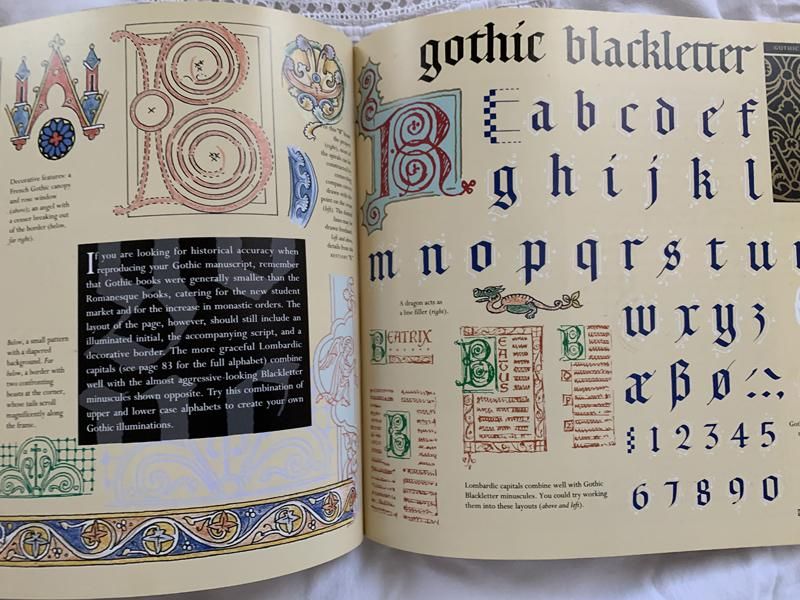 Decorative features: a
French Gothic canopy
and rose window
(above); an angel with
a censer breaking out
of the border (below,
far right).
If you are looking for historical accuracy when
reproducing your Gothic manuscript, remember
that Gothic books were generally smaller than the
Romanesque books, catering for the new student
market and for the increase in monastic orders. The
layout of the page, however, should still include an
illuminated initial, the accompanying script, and a
decorative border. The more graceful Lombardic
capitals (see page 83 for the full alphabet) combine
well with the almost aggressive-looking Blackletter
minuscules shown opposite. Try this combination of
upper and lower case alphabets to create your own
Gothic illuminations.
Below, a small pattern
with a diapered
background. Far
below, a border with
two confronting
beasts at the corner,
whose tails scroll
magnificently along
the frame.
gothic blackletter
a b c d e f
g h i j k l
m n o p q r s t u
w x y z
æ ß ø
1 2 3 4 5
6 7 8 9 0
A dragon acts as
a line filler (right).
BEATRIX
BEATUS
B
B
Lombardic capitals combine well with Gothic
Blackletter minuscules. You could try working
them into these layouts (above and left).
GOTHIC